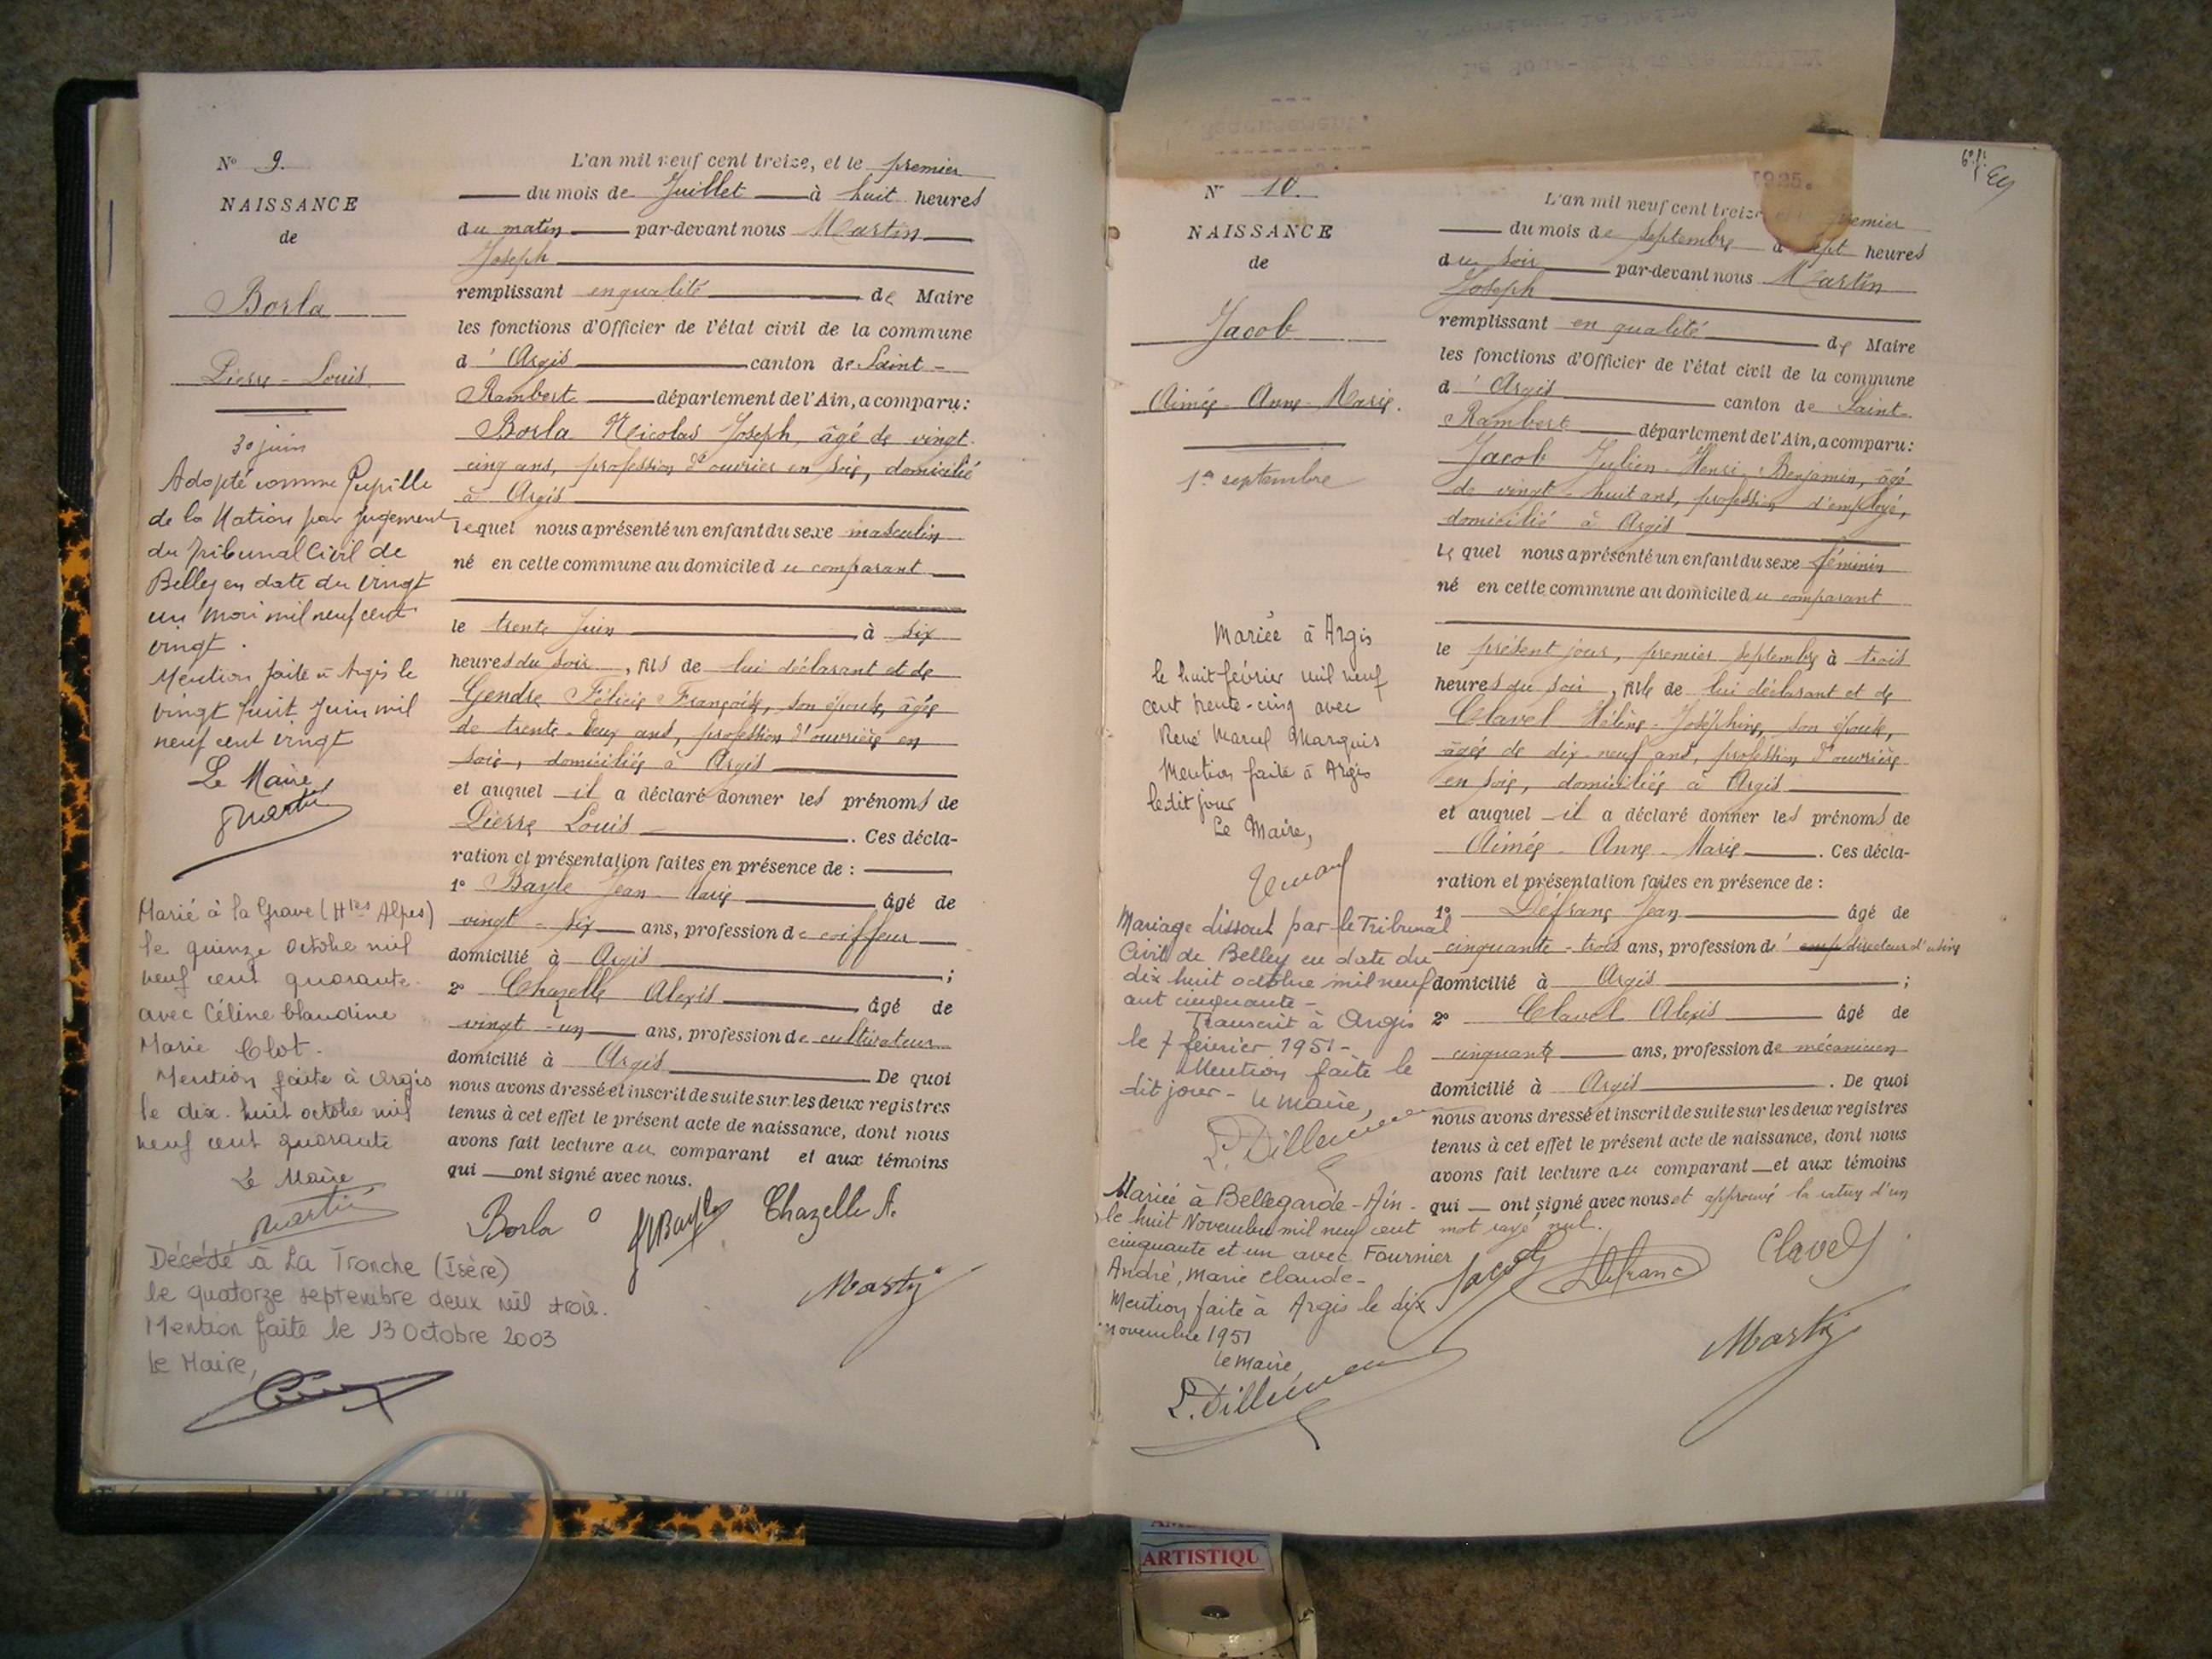 N° 9.
NAISSANCE
de
Borla
Pierre - Louis.
30 juin
Adopté comme Pupille
de la Nation par jugement
du Tribunal Civil de
Belley en date du vingt
un Mai mil neuf cent
vingt.
Mention faite à Argis le
vingt huit Juin mil
neuf cent vingt
Le Maire,
JMartin
Marié à la Grave (Htes Alpes)
le quinze octobre mil
neuf cent quarante.
avec Céline blandine
Marie Clot.
Mention faite à Argis
le dix-huit octobre mil
neuf cent quarante
Le Maire
Martin
Décédé à La Tronche (Isère)
le quatorze septembre deux mil trois.
Mention faite le 13 Octobre 2003
le Maire,
L'an mil neuf cent treize, et le premier
du mois de Juillet à huit heures
du matin par-devant nous Martin
Joseph
remplissant en qualité de Maire
les fonctions d'Officier de l'état civil de la commune
d'Argis canton de Saint-
Rambert département de l'Ain, a comparu:
Borla Nicolas Joseph, âgé de vingt
cinq ans, profession d'ouvrier en soie, domicilié
à Argis
lequel nous a présenté un enfant du sexe masculin
né en cette commune au domicile du comparant
le trente Juin à six
heures du soir, fils de lui déclarant et de
Gendre Félicie Françoise, son épouse, âgée
de trente-deux ans, profession d'ouvrière en
soie, domiciliée à Argis
et auquel il a déclaré donner les prénoms de
Pierre Louis. Ces décla-
ration et présentation faites en présence de :
1° Bayle Jean Marie âgé de
vingt-six ans, profession de coiffeur
domicilié à Argis ;
2° Chazelle Alexis âgé de
vingt-un ans, profession de cultivateur
domicilié à Argis De quoi
nous avons dressé et inscrit de suite sur les deux registres
tenus à cet effet le présent acte de naissance, dont nous
avons fait lecture au comparant et aux témoins
qui ont signé avec nous.
Borla JMBayle Chazelle A.
Martin
N° 10.
NAISSANCE
de
Jacob
Aimée-Anne-Marie.
1er septembre
Mariée à Argis
le huit février mil neuf
cent trente-cinq avec
René Marcel Marquis
Mention faite à Argis
ledit jour
Le Maire,
Mariage dissout par le Tribunal
Civil de Belley en date du
dix huit octobre mil neuf
cent cinquante-
Transcrit à Argis
le 7 février 1951-
Mention faite le
dit jour - le maire,
L. Dillemen
Mariée à Bellegarde-Ain-
le huit Novembre mil neuf cent
cinquante et un avec Fournier
André, Marie Claude-
Mention faite à Argis le dix
novembre 1951
le maire,
L. Dillemen
1925.
L'an mil neuf cent treize premier
du mois de septembre à sept heures
du soir par-devant nous Martin
Joseph
remplissant en qualité de Maire
les fonctions d'Officier de l'état civil de la commune
d'Argis canton de Saint-
Rambert département de l'Ain, a comparu:
Jacob Julien-Henri-Benjamin, âgé
de vingt-huit ans, profession d'employé,
domicilié à Argis
lequel nous a présenté un enfant du sexe féminin
né en cette commune au domicile du comparant
le présent jour, premier septembre à trois
heures du soir, fille de lui déclarant et de
Clavel Hélène-Joséphine, son épouse,
âgée de dix-neuf ans, profession d'ouvrière
en soie, domiciliée à Argis
et auquel il a déclaré donner les prénoms de
Aimée-Anne-Marie. Ces décla-
ration et présentation faites en présence de :
1° Défranc Jean âgé de
cinquante-trois ans, profession de emp directeur d'usine
domicilié à Argis ;
2° Clavel Alexis âgé de
cinquante ans, profession de mécanicien
domicilié à Argis. De quoi
nous avons dressé et inscrit de suite sur les deux registres
tenus à cet effet le présent acte de naissance, dont nous
avons fait lecture au comparant et aux témoins
qui ont signé avec nous et approuvé la rature d'un
mot rayé nul.
Jacob Defranc Clavel
Martin
ARTISTIQU